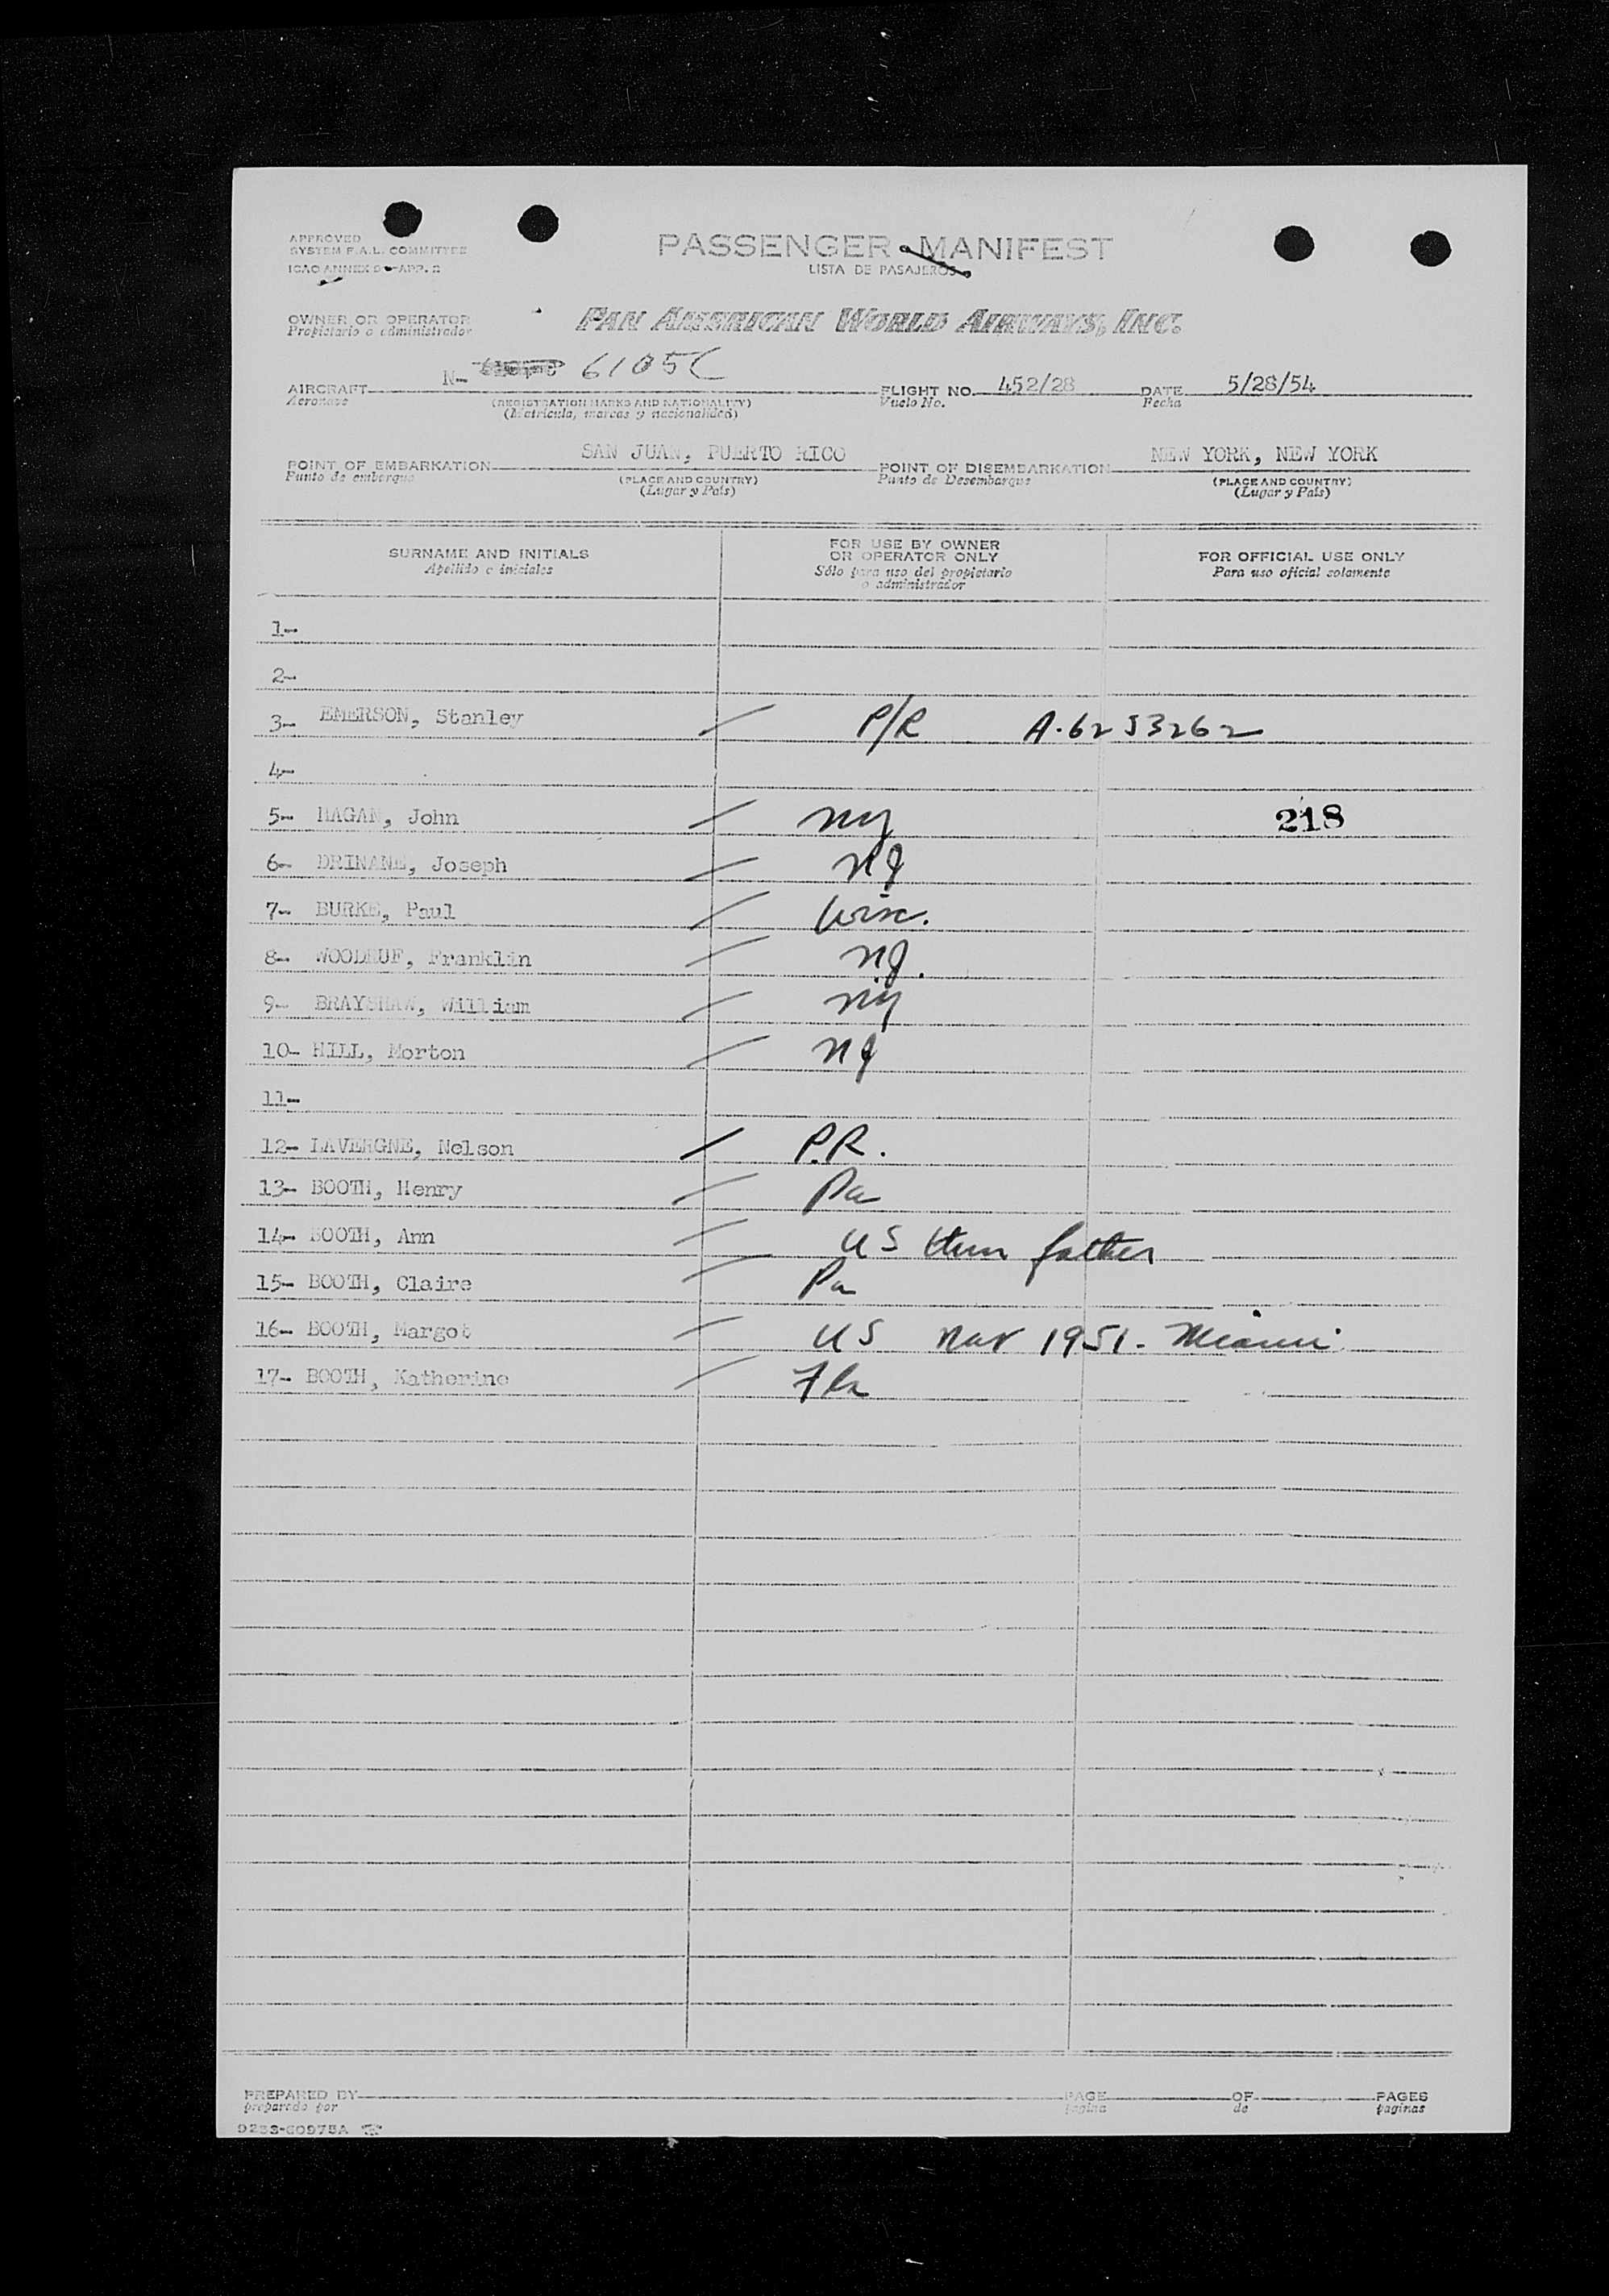 APPROVED
SYSTEM F.A.L. COMMITTEE
ICAO ANNEX 9-APP. 2
PASSENGER MANIFEST
LISTA DE PASAJEROS
OWNER OR OPERATOR
Propietario o administrador
PAN AMERICAN WORLD AIRWAYS, INC.
AIRCRAFT N- 6105C FLIGHT NO. 452/28 DATE 5/28/54
Aeronave (REGISTRATION MARKS AND NATIONALITY) Vuelo No. Fecha
(Matricula, marcas y nacionalidad)
POINT OF EMBARKATION SAN JUAN, PUERTO RICO POINT OF DISEMBARKATION NEW YORK, NEW YORK
Punto de embarque (PLACE AND COUNTRY) Punto de Desembarque (PLACE AND COUNTRY)
(Lugar y País) (Lugar y País)
SURNAME AND INITIALS FOR USE BY OWNER OR OPERATOR ONLY FOR OFFICIAL USE ONLY
Apellido e iniciales Sólo para uso del propietario o administrador Para uso oficial solamente
1-
2-
3- EMERSON, Stanley P/R A-6253262
4-
5- HAGAN, John NY 218
6- DRINANE, Joseph NJ
7- BURKE, Paul Wisc.
8- WOODRUF, Franklin NJ.
9- BRAYSHAW, William NY
10- HILL, Morton NJ
11-
12- LAVERGNE, Nelson P.R.
13- BOOTH, Henry Pa
14- BOOTH, Ann US thru father
15- BOOTH, Claire Pa
16- BOOTH, Margot US Nat 1951. Miami
17- BOOTH, Katherine Fla
PREPARED BY PAGE OF PAGES
preparado por pagina de paginas